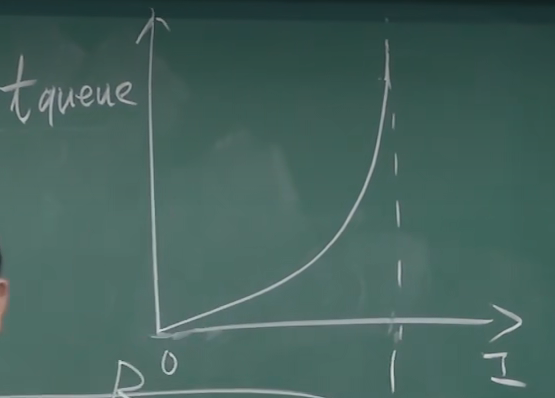 t queue
0 1 I
R